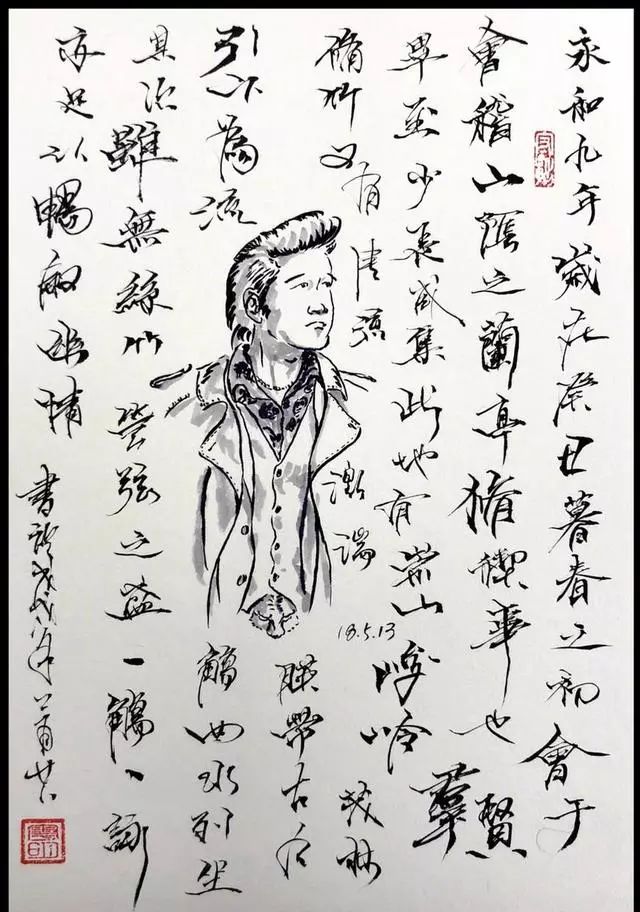 永和九年歲在癸丑暮春之初會于
會稽山陰之蘭亭脩禊事也羣賢
畢至少長咸集此地有崇山
峻嶺
茂林
脩竹又有清流激湍
18.5.13
映帶左右
引以為流
觴曲水列坐
其次雖無絲竹管弦之盛一觴一詠
亦足以暢敘幽情
書於戊戌年